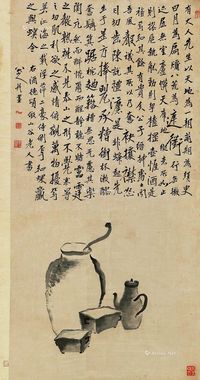 有大人先生以天地為一朝萬期為須臾
日月為扃牖八荒為庭衢行無轍
迹居無室廬幕天席地縱意所如止
則操卮執觚動則挈榼提壺惟酒是
務焉知其餘有貴介公子搢紳處士聞
吾風聲議其所以乃奮袂攘襟怒
目切齒陳說禮法是非蜂起先
生於是方捧甖承槽銜杯漱醪
奮髯箕踞枕麴藉糟無思無慮其樂
陶陶兀然而醉恍爾而醒靜聽不聞雷霆
之聲熟視不見泰山之形不覺寒暑
之切肌利欲之感情俯觀萬物擾擾
焉若江海之載浮萍二豪侍側焉如蜾蠃
之與螟蛉 右酒德頌倣山谷老人書